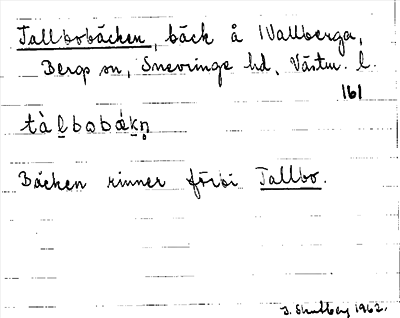 Tallbobäcken, bäck å Wallberga,
Bergs sn, Snevringe hd, Västm. l.
161
tàl̲bobák̲n̥
Bäcken rinner förbi Tallbo.
1962.